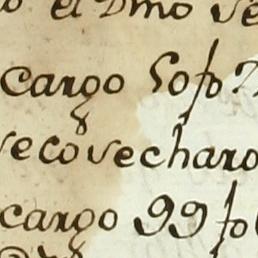 el Dmo ve
cargo 50 fo
vecovecharo
cargo 99 fo